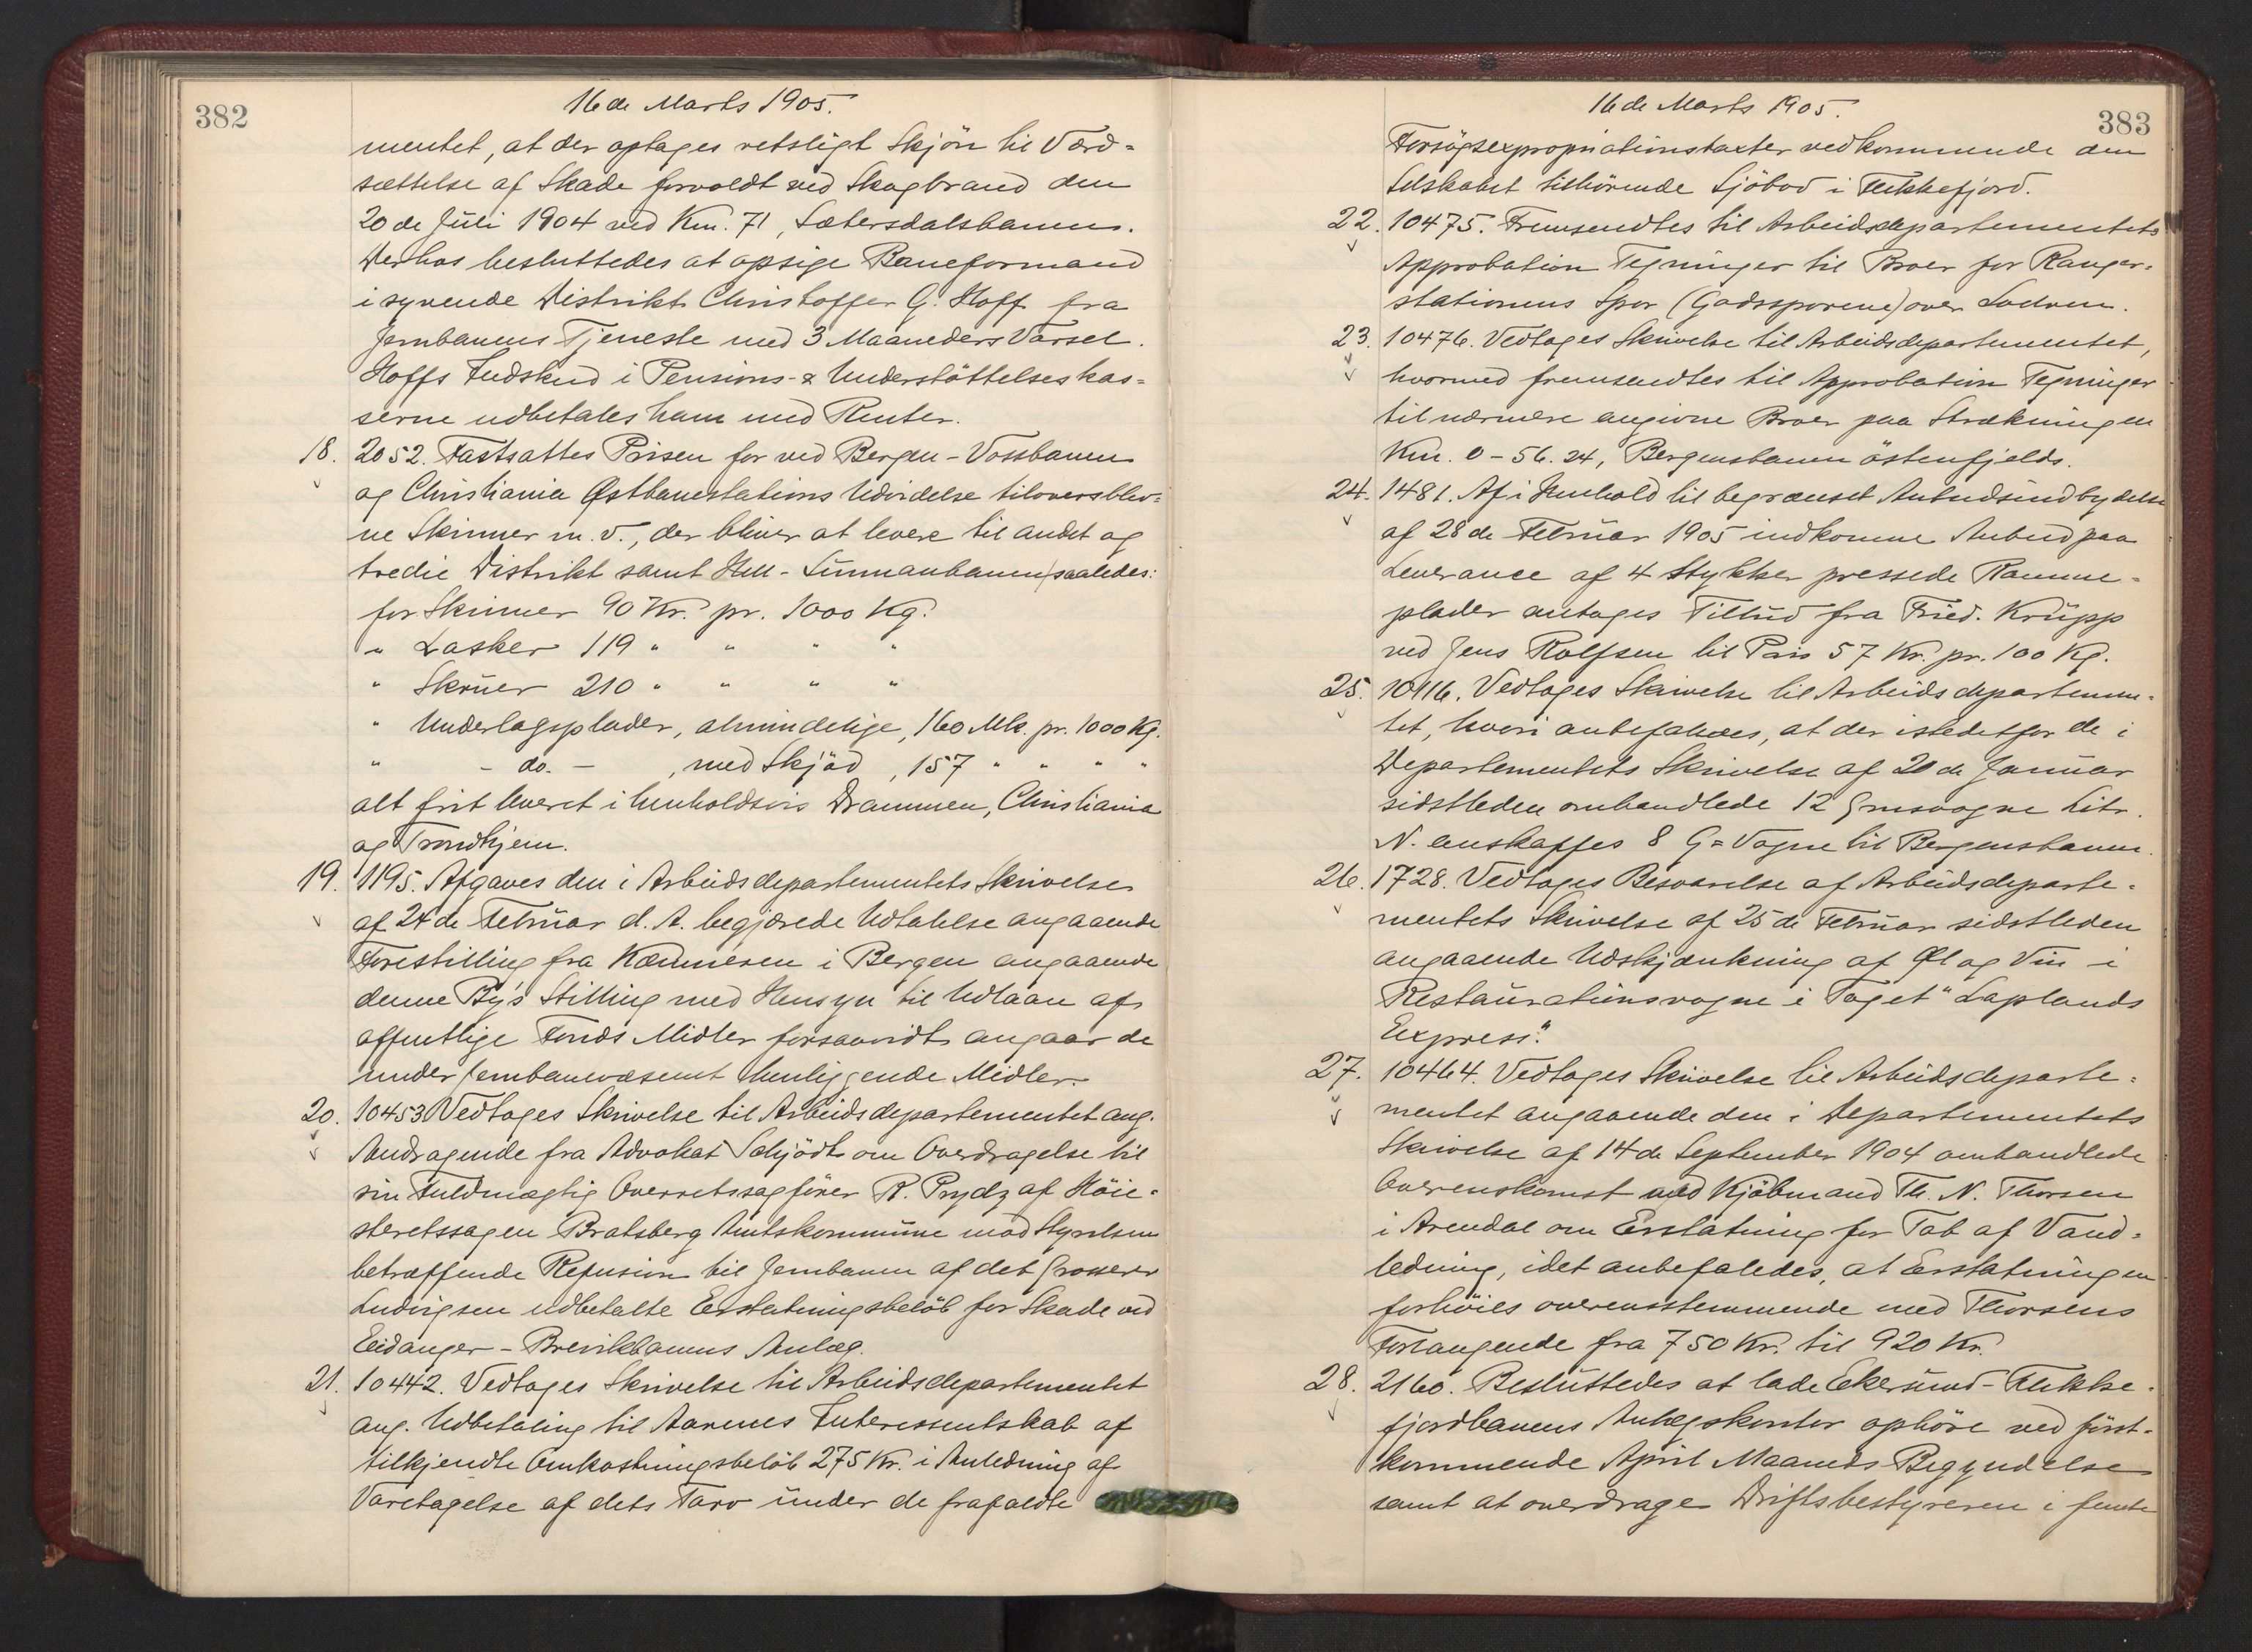 382
16de Marts 1905.
mentet, at der optages retsligt Skjön til Værd-
sættelse af Skade forvoldt ved Skogbrand den
20de Juli 1904 ved Km. 71, Sætersdalsbanen.
Derhos besluttedes at opsige Baneformand
i syvende Distrikt Christoffer G. Hoff fra
Jernbanens Tjeneste med 3 Maaneders Varsel.
Hoffs Indskud i Pensions- & Understöttelseskas-
serne udbetales ham med Renter.
18. 2052. Fastsattes Prisen for ved Bergen-Vossbanen
og Christiania Østbanestations Udvidelse tiloversblev-
ne Skinner m.v., der bliver at levere til andet og
tredie Distrikt samt Hell-Sunnanbanen saaledes:
for Skinner 90 Kr. pr. 1000 Kg.
" Lasker 119 " " " "
" Skruer 210 " " " "
" Underlagsplader, almindelige, 160 Mk. pr. 1000 Kg.
" - do. - , med Skjöd, 157 " " " "
alt frit leveret i henholdsvis Drammen, Christiania
og Trondhjem.
19. 1195. Afgaves den i Arbeidsdepartementets Skrivelse
af 24de Februar d. A. begjærede Udtalelse angaaende
Forestilling fra Kæmneren i Bergen angaaende
denne By's Stilling med Hensyn til Udlaan af
offentlige Fonds Midler forsaavidt angaar de
under Jernbanevæsenet henliggende Midler.
20. 10453 Vedtages Skrivelse til Arbeidsdepartementet ang.
Andragende fra Advokat Schjödt om Overdragelse til
sin Fuldmægtig Overretssagförer R. Prydz af Höie-
steretssagen Bratsberg Amtskommune mod Styrelsen
betræffende Refusion til Jernbanen af det Grosserer
Ludvigsen udbetalte Erstatningsbelöb for Skade ved
Eidanger-Brevikbanens Anlæg.
21. 10442. Vedtages Skrivelse til Arbeidsdepartementet
ang. Udbetaling til Aarenes Interessentskab af
tilkjendte Omkostningsbelöb 275 Kr. i Anledning af
Varetagelse af dets Tarv under de frafaldte
383
16de Marts 1905.
Forsögsexpropriationstaxter vedkommende den
Selskabet tilhörende Sjöbod i Flekkefjord.
22. 10475. Fremsendtes til Arbeidsdepartementets
Approbation Tegninger til Broer for Ranger-
stationens Spor (Godssporene) over Lodven.
23. 10476. Vedtages Skrivelse til Arbeidsdepartementet,
hvormed fremsendtes til Approbation Tegninger
til nærmere angivne Broer paa Strækningen
Km. 0-56.24, Bergensbanen östenfjelds.
24. 1481. Af i Henhold til begrænset Anbudsindbydelse
af 28de Februar 1905 indkomne Anbud paa
Leverance af 4 Stykker pressede Ramme-
plader antages Tilbud fra Fried. Krüpp
ved Jens Rolfsen til Pris 57 Kr. pr. 100 Kg.
25. 10116. Vedtages Skrivelse til Arbeidsdepartemen-
tet, hvori anbefaledes, at der istedetfor de i
Departementets Skrivelse af 20de Januar
sidstleden omhandlede 12 Grusvogne Litr.
N. anskaffes 8 G=Vogne til Bergensbanen.
26. 1728. Vedtages Besvarelse af Arbeidsdeparte-
mentets Skrivelse af 25de Februar sidstleden
angaaende Udskjænkning af Øl og Vin i
Restaurationsvogne i Toget "Laplands
Express".
27. 10464. Vedtages Skrivelse til Arbeidsdeparte-
mentet angaaende den i Departementets
Skrivelse af 14de September 1904 omhandlede
Overenskomst med Kjöbmand Th. N. Thorsen
i Arendal om Erstatning for Tab af Vand-
ledning, idet anbefaledes, at Erstatningen
forhöies overensstemmende med Thorsens
Forlangende fra 750 Kr. til 920 Kr.
28. 2160. Besluttedes at lade Ekersund-Flekke-
fjordbanens Anlægskontor ophöre ved först-
kommende April Maaneds Begyndelse
samt at overdrage Driftsbestyreren i femte